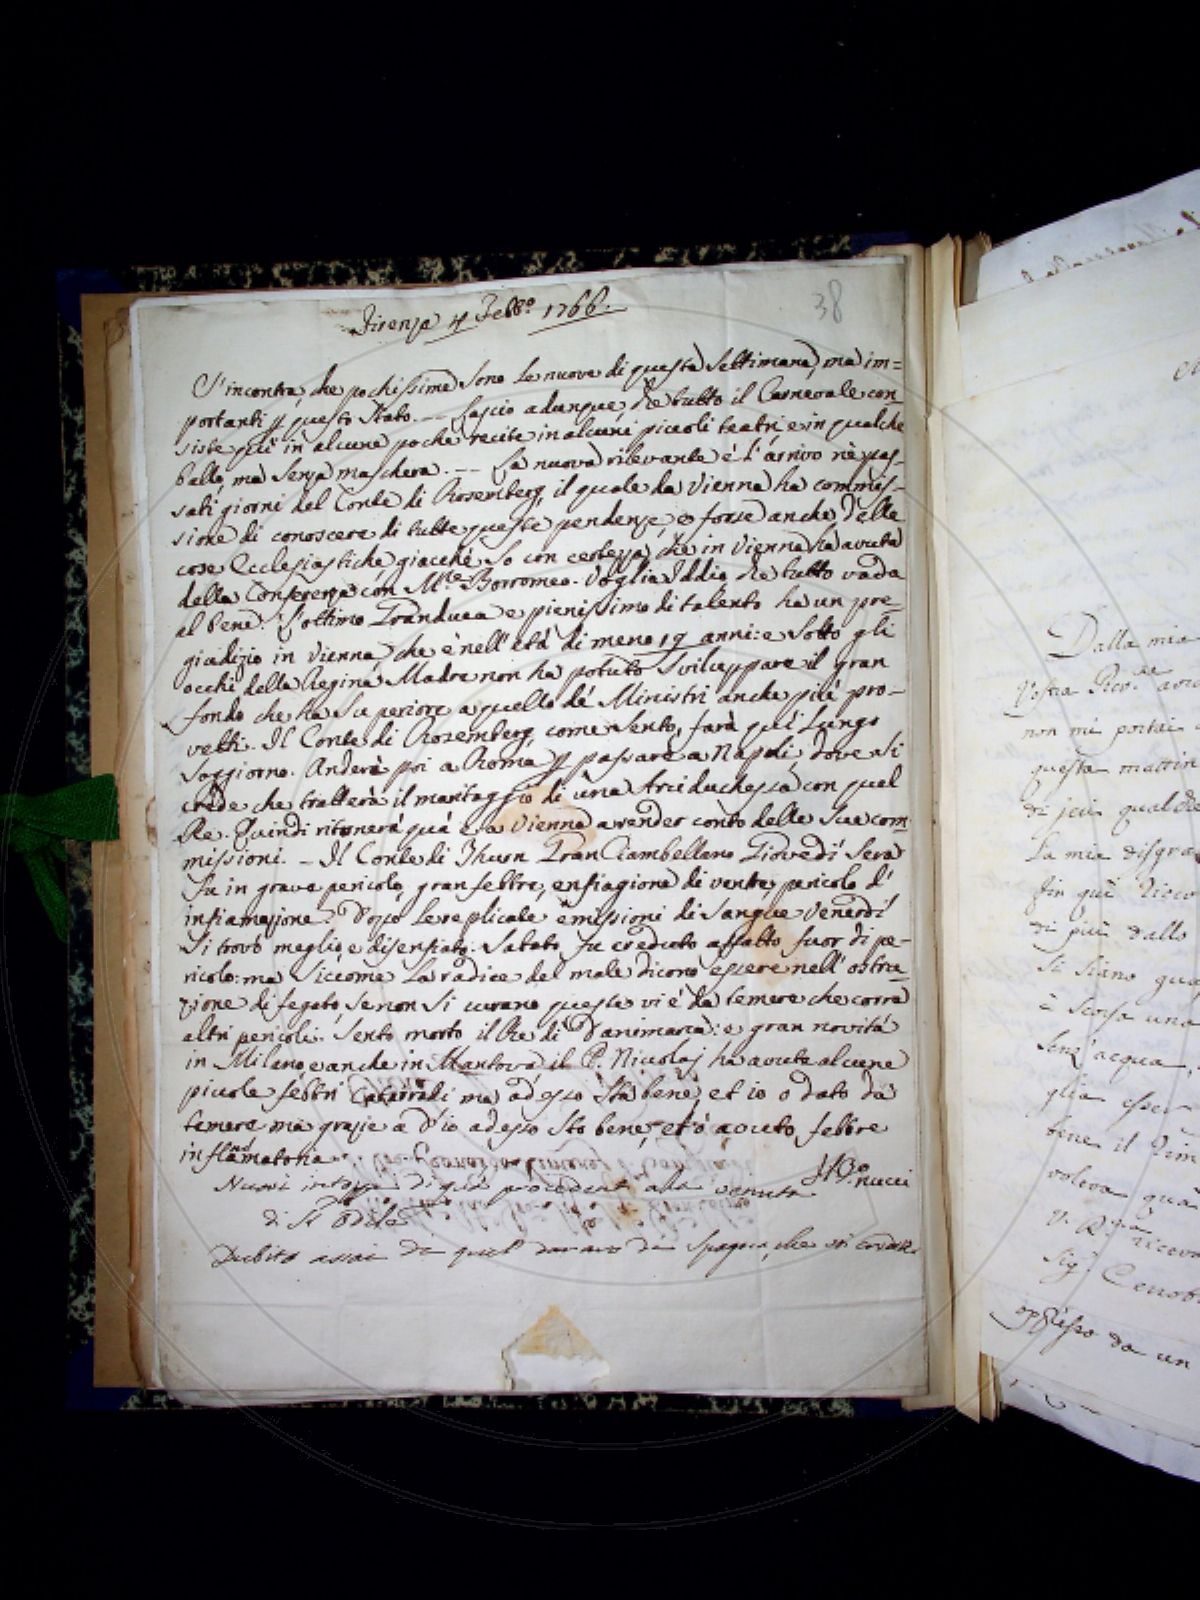 Firenze 4 Febb.o 1766.
38
S'incontra, che pochissime sono le nuove di questa settimana, ma im=
portanti p questo Stato. -- Lascio adunque, che tutto il Carnevale con
siste quì in alcune poche recite in alcuni piccoli teatri, e in qualche
ballo, ma senza maschera. -- La nuova rilevante é l'arrivo ne' pas-
sati giorni del Conte di Rosemberg, il quale da Vienna ha commis-
sione di conoscere di tutte queste pendenze, e forse anche delle
cose Ecclesiastiche, giacché so con certezza, che in Vienna ha avuta
della Conferenza con M.re Borromeo. Voglia Iddio, che tutto vada
al bene. L'ottimo Granduca e pienissimo di talento ha un pre-
giudizio in Vienna, che è nell'età di meno 19 anni: e sotto gli
occhi della Regina Madre non ha potuto sviluppare il gran
fondo che ha superiore a quello dé Ministri anche più pro-
vetti. Il Conte di Rosemberg, come sento, farà quì lungo
soggiorno. Anderà poi a Roma p passare a Napoli dove si
crede che tratterà il maritaggio di una Arciduchessa con quel
Re. Quindi ritornerá quá e a Vienna a render conto delle sue com=
missioni. - Il Conte di Thurn Gran Ciambellano Giovedí sera
fu in grave pericolo, gran febbre, enfiagione di ventre, pericolo d'
infiamazione. Dopo le replicate emissioni di sangue Venerdí
si trovò meglio, e disenfiato. Sabato fu creduto affatto fuor di pe-
ricolo: ma siccome la radice del male dicono essere nell' ostru-
zione di fegato, se non si curano queste vi é da temere che corra
altri pericoli. Sento morto il Re di Danimarca: e gran novità
in Milano, e anche in Mantova, il P. Nicolaj ha avute alcune
piccole febbri Catarrali ma adesso stà bene, et io o dato da
temere ma grazie a D'io adesso sto bene, et ò avuto febbre
inflamatoria
Nuovi intoppi di già precedenti alla venuta
di
Dubito assai di quel denaro di Spagna, che mi
Dalla mia
Vostra Rev.
non mi portai
questa mattin
di jeri qual die
La mia disgra
fin quì
di più dallo
si siano qua
è scorsa una
senz' acqua,
glia esser
bene il Vim
voleva quà
Sig.
oppresso da un